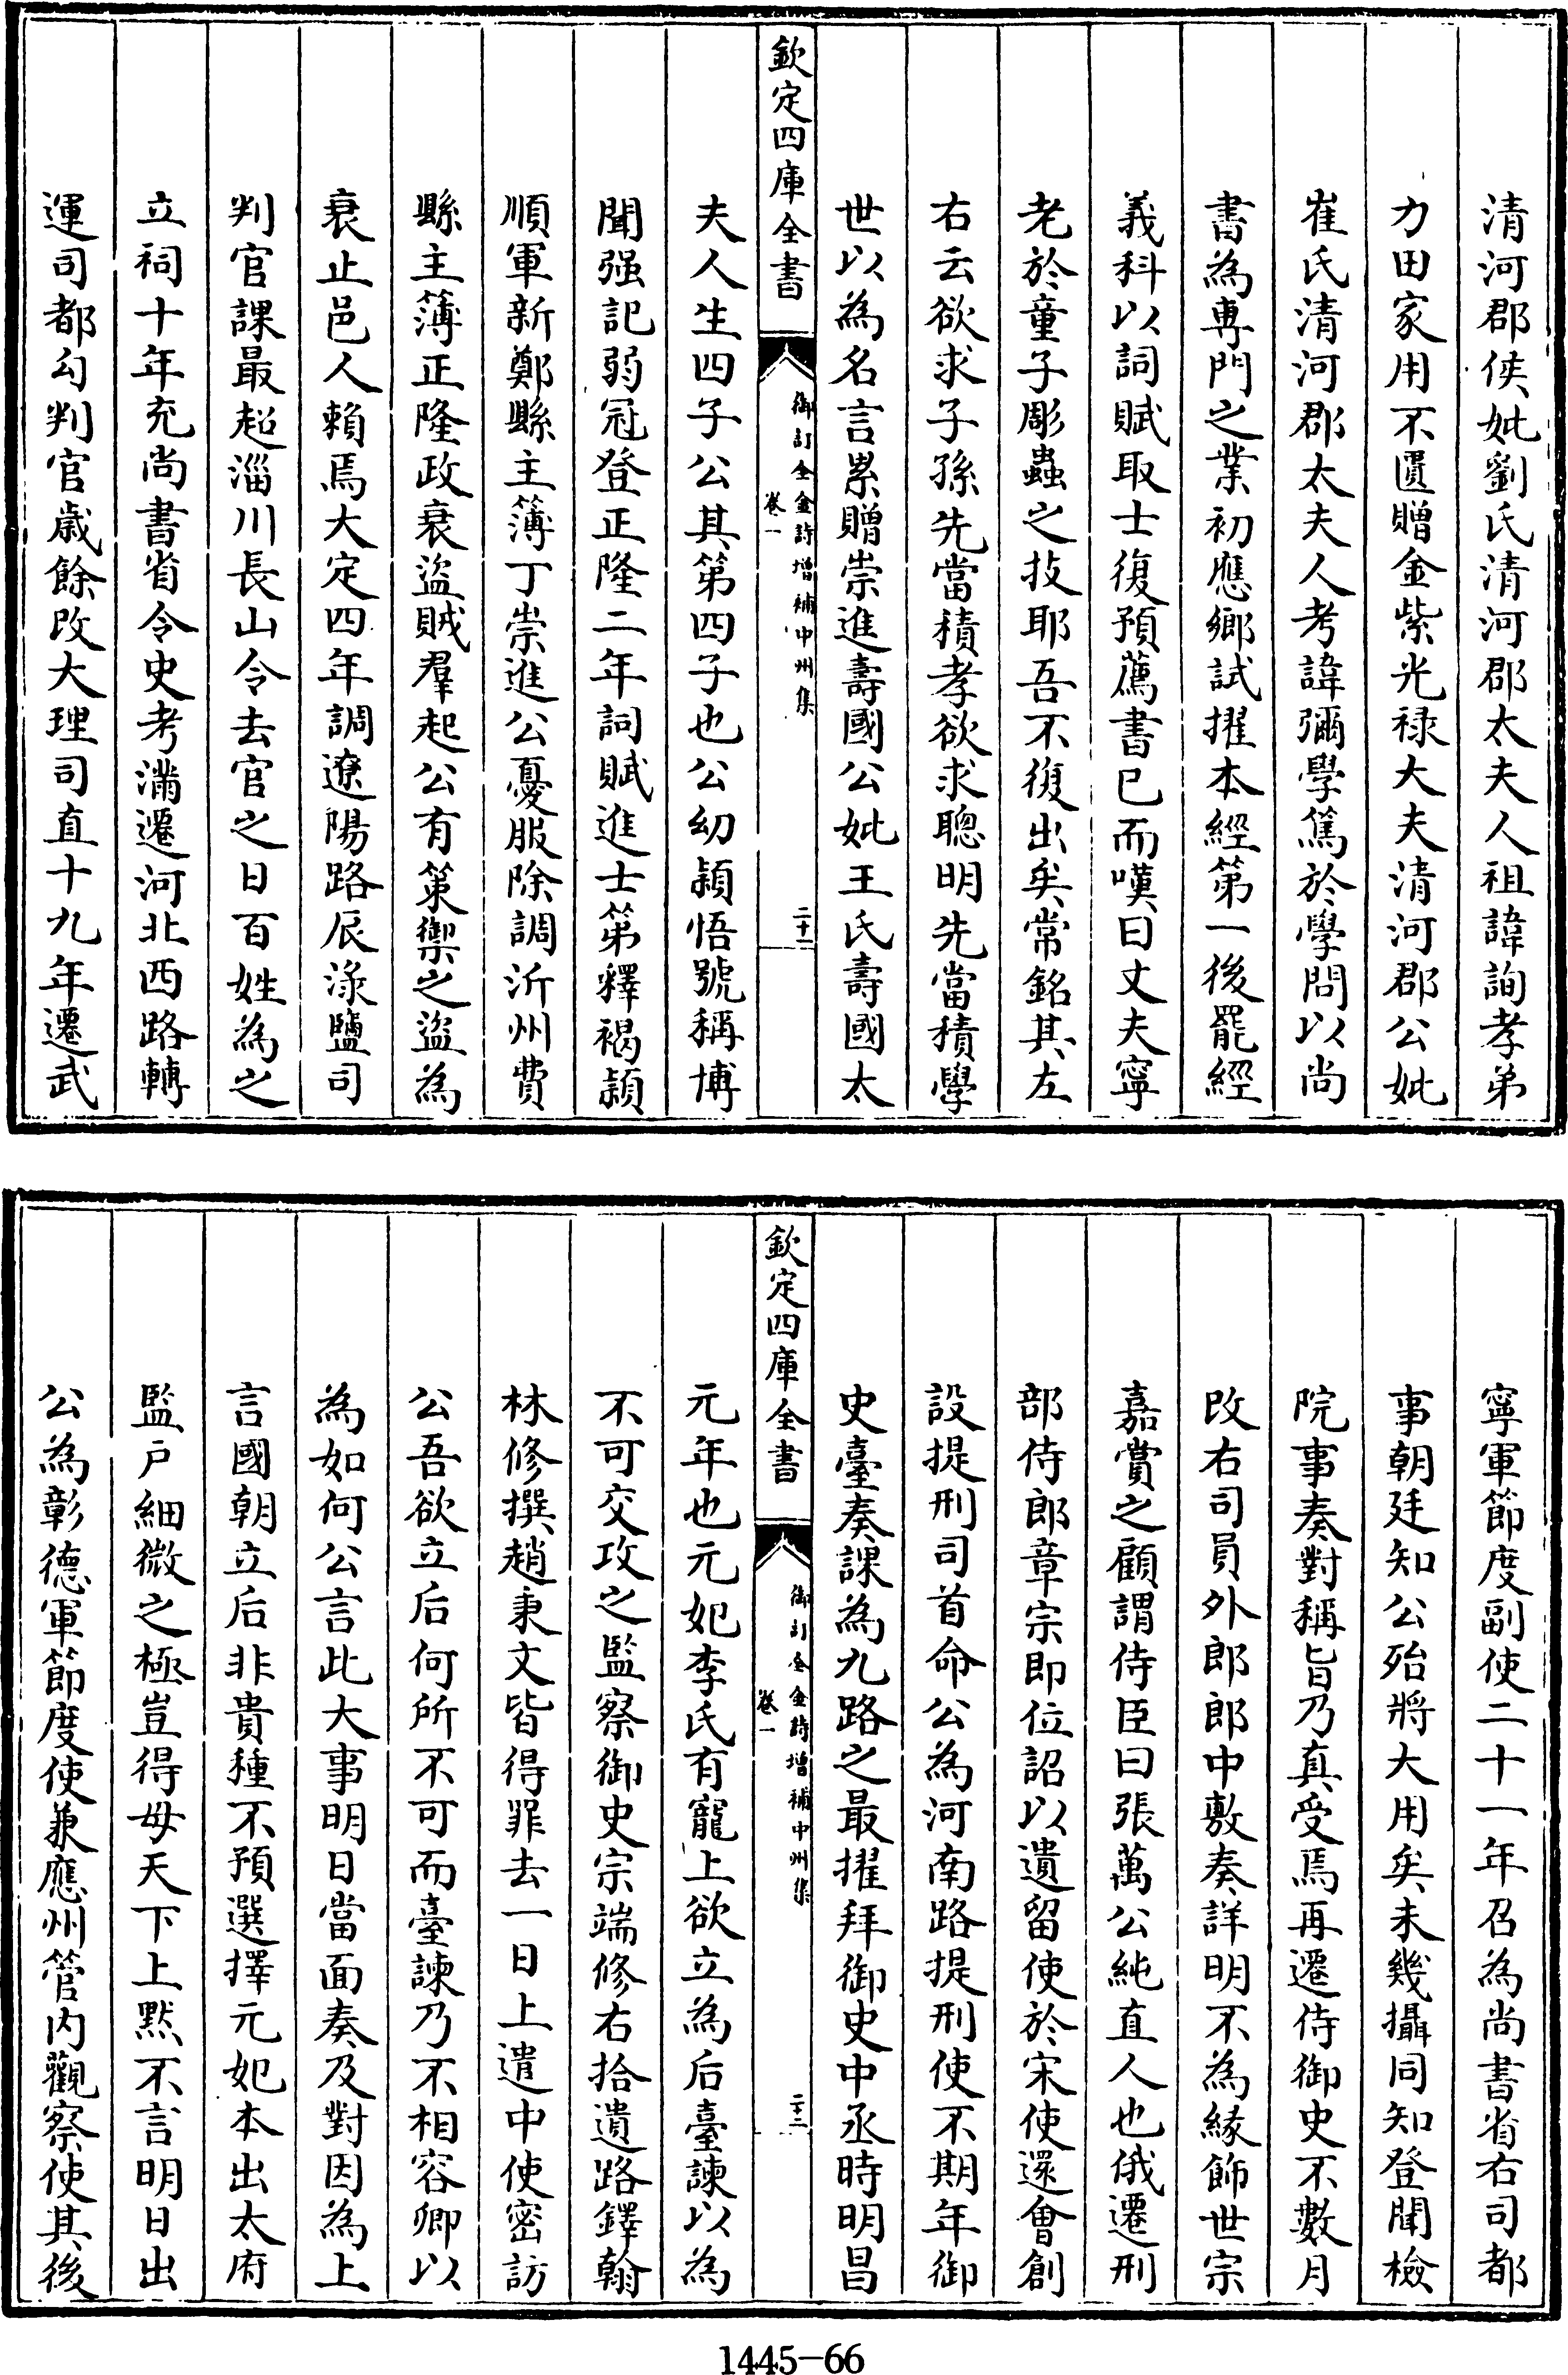 清河郡侯妣劉氏清河郡太夫人祖諱詢孝弟
力田家用不匱贈金紫光祿大夫清河郡公妣
崔氏清河郡太夫人考諱彌學篤於學問以尚
書為專門之業初應鄉試擢本經第一後罷經
義科以詞賦取士復預薦書已而嘆曰丈夫寧
老於童子彫蟲之技耶吾不復出矣常銘其左
右云欲求子孫先當積孝欲求聰明先當積學
世以為名言累贈崇進壽國公妣王氏壽國太
欽定四庫全書
御訂全金詩增補中州集
卷一
二十一
夫人生四子公其第四子也公幼穎悟號稱博
聞强記弱冠登正隆二年詞賦進士第釋褐潁
順軍新鄭縣主簿丁崇進公憂服除調沂州費
縣主簿正隆政衰盜賊羣起公有策禦之盜為
衰止邑人賴焉大定四年調遼陽路辰淥鹽司
判官課最超淄川長山令去官之日百姓為之
立祠十年充尚書省令史考滿遷河北西路轉
運司都勾判官歲餘改大理司直十九年遷武
寧軍節度副使二十一年召為尚書省右司都
事朝廷知公殆將大用矣未幾攝同知登聞檢
院事奏對稱旨乃真受焉再遷侍御史不數月
改右司員外郎郎中敷奏詳明不為緣飾世宗
嘉賞之顧謂侍臣曰張萬公純直人也俄遷刑
部侍郎章宗即位詔以遺留使於宋使還會創
設提刑司首命公為河南路提刑使不期年御
史臺奏課為九路之最擢拜御史中丞時明昌
欽定四庫全書
御訂全金詩增補中州集
卷一
二十二
元年也元妃李氏有寵上欲立為后臺諫以為
不可交攻之監察御史宗端修右拾遺路鐸翰
林修撰趙秉文皆得罪去一日上遣中使密訪
公吾欲立后何所不可而臺諫乃不相容卿以
為如何公言此大事明日當面奏及對因為上
言國朝立后非貴種不預選擇元妃本出太府
監戶細微之極豈得母天下上默不言明日出
公為彰德軍節度使兼應州管内觀察使其後
1445-66